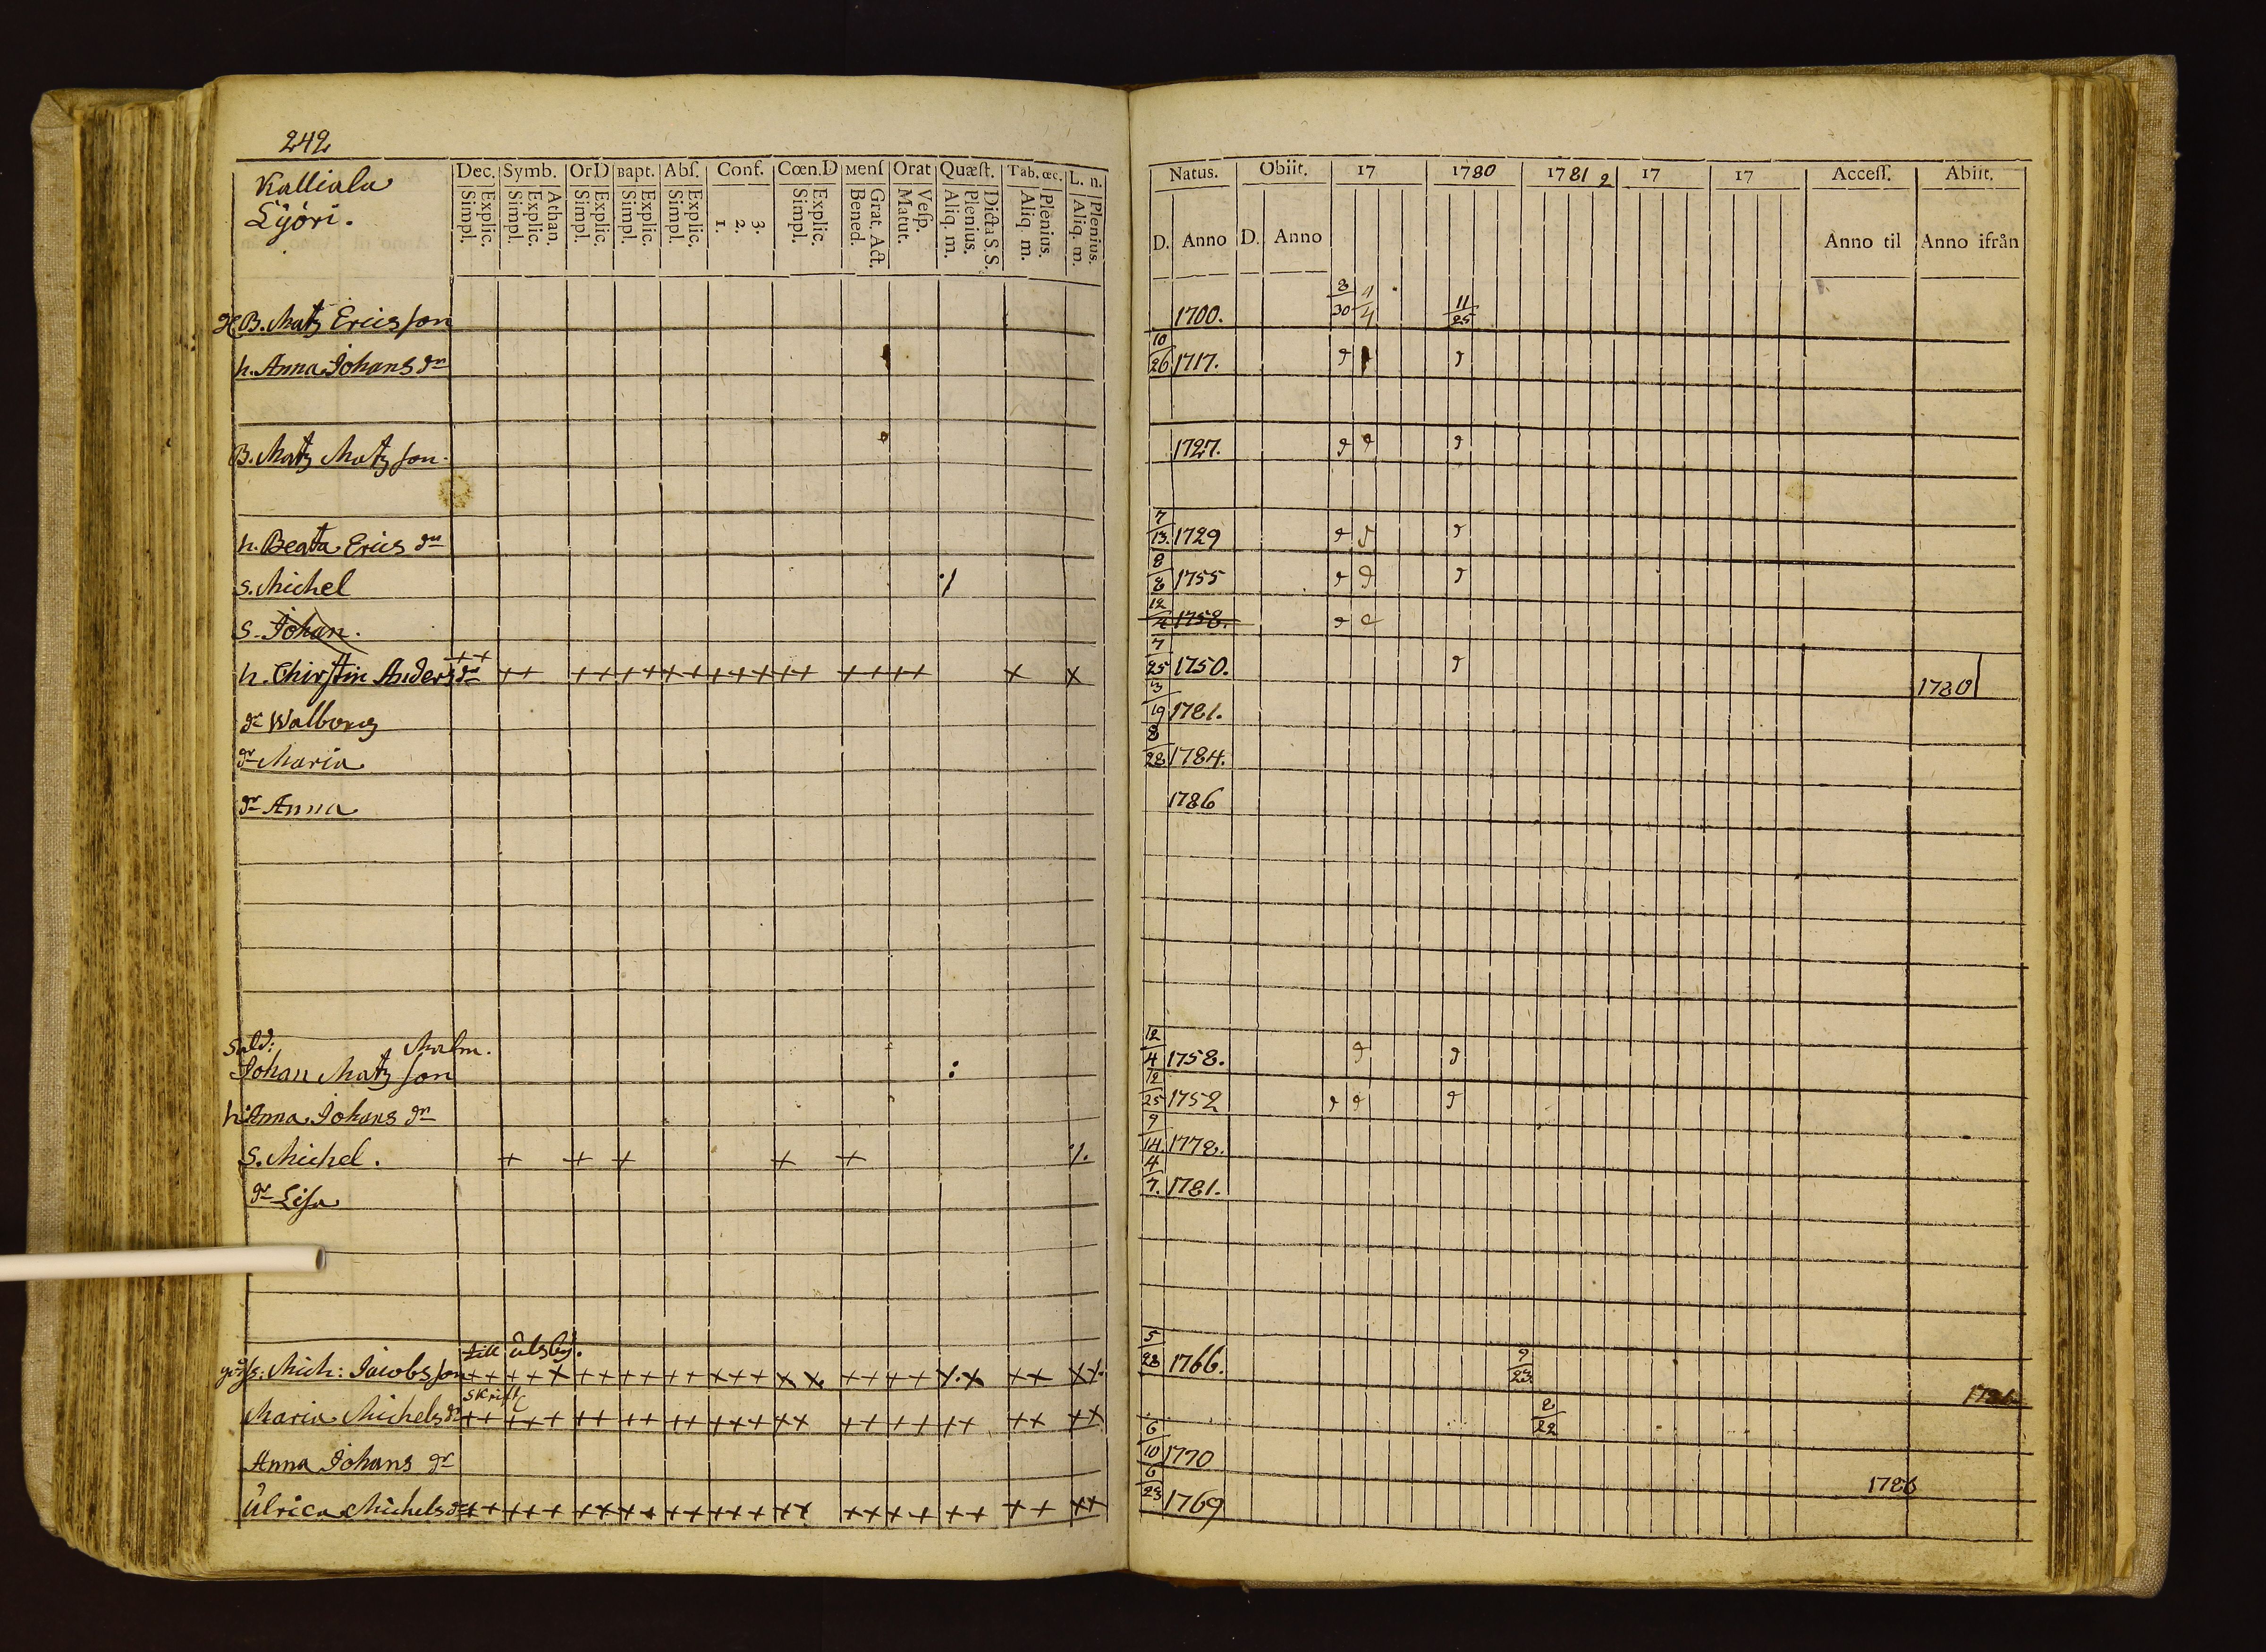 242
Kalliala
Lÿöri.
Dec. Symb. Or D Bapt. Abſ. Conf. Cœn. D Menſ Orat Quæſt. Tab. œc. L. n.
Explic. Simpl. Athan. Explic. Simpl. Explic. Simpl. Explic. Simpl. Explic. Simpl. 3. 2. 1. Explic. Simpl. Grat. Act. Bened. Veſp. Matut. Dicta S. S. Plenius. Aliq. m. Plenius. Aliq. m. Plenius. Aliq. m.
Natus. Obiit. 17 1780 1781 2 17 17 Acceſſ. Abiit.
D. Anno D. Anno Anno til Anno ifrån
B. Matz Ericsson 1700. 8/30 4/4 11/25
h. Anna Johans dr 10/26 1717.
B. Matz Matzson 1727.
h. Beata Erics dr 7/13. 1729
S. Michel ·/ 8/8 1755
S. Johan. 12/4 1758.
h. Chirstin Anders dr ++ ++ ++ ++ ++ +++ ++ ++ ++ + x 7/25 1750. 1780
dr Walborg 3/19 1781.
dr Maria 8/28 1784.
dr Anna 1786
Sold: Malm.
Johan Matzson : 12/4 1758.
h. Anna Johans dr 12/25 1752
S. Michel. + + + + + ·/. 9/14. 1778.
dr Lisa 4/7. 1781.
till Ulsby.
Mich: Jacobsson ++ +++ ++ ++ ++ +++ xx ++ ++ ++ ++ 5/28 1766. 9/23
Skrift
Maria Michels dr ++ +++ ++ ++ ++ +++ ++ ++ ++ ++ ++ ++ 2/22
Anna Johans dr 6/10 1770
Ulrica Michels dr ++ +++ ++ ++ ++ +++ ++ ++ ++ ++ ++ ++ 6/23 1769 1786